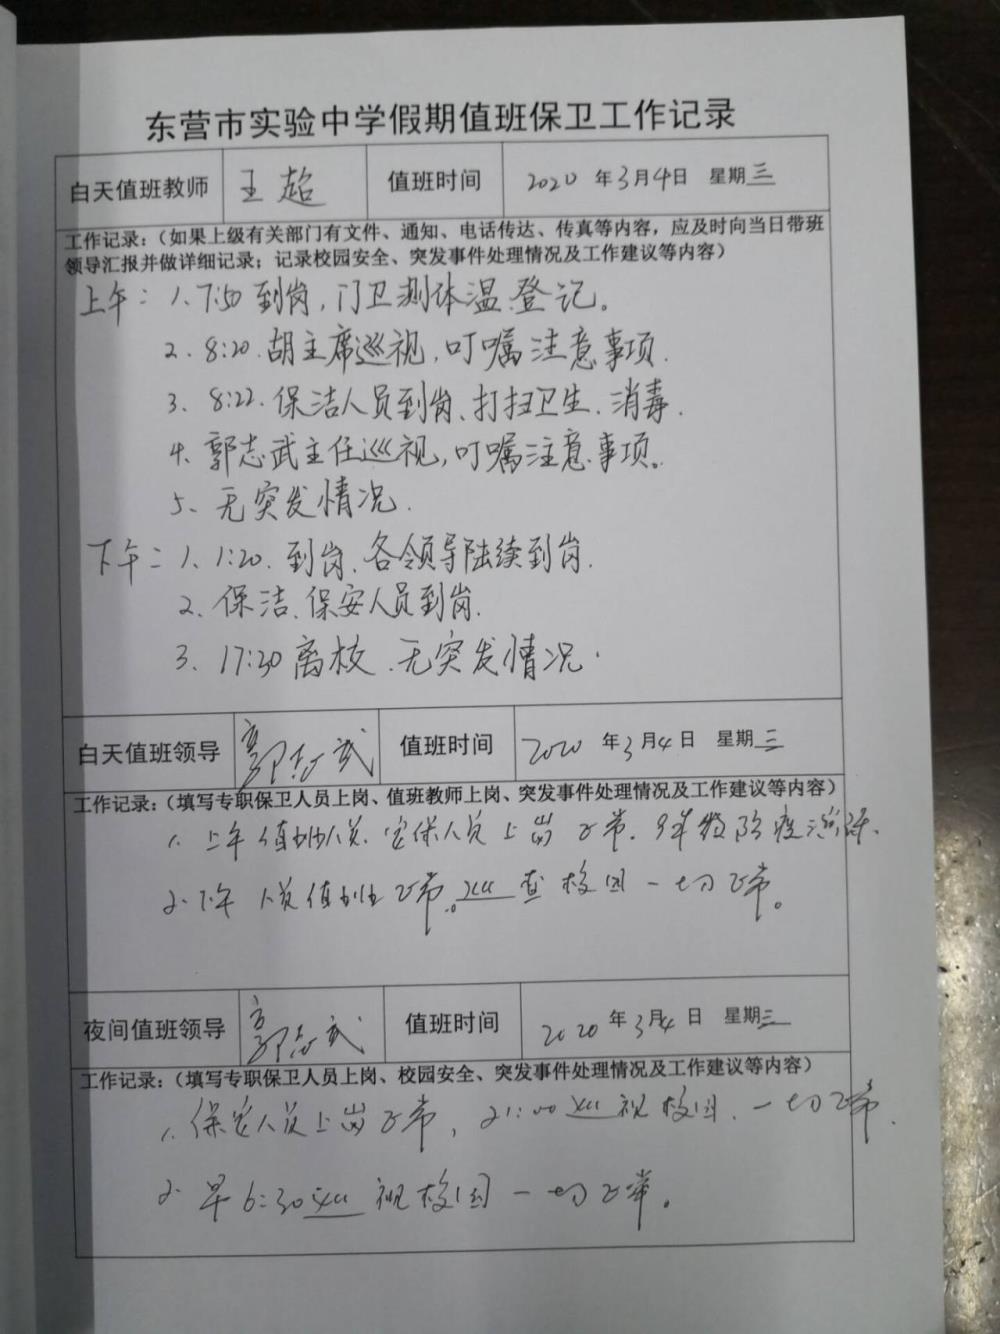 东营市实验中学假期值班保卫工作记录
白天值班教师 王超 值班时间 2020 年3月4日 星期三
工作记录:(如果上级有关部门有文件、通知、电话传达、传真等内容,应及时向当日带班
领导汇报并做详细记录;记录校园安全、突发事件处理情况及工作建议等内容)
上午:1、7:50到岗,门卫测体温登记。
2、8:20.胡主席巡视,叮嘱注意事项.
3、8:22.保洁人员到岗、打扫卫生、消毒.
4、郭志武主任巡视,叮嘱注意事项。
5、无突发情况.
下午:1、1:20.到岗、各领导陆续到岗.
2、保洁、保安人员到岗.
3、17:30离校、无突发情况.
白天值班领导 郭志武 值班时间 2020 年3月4日 星期三
工作记录:(填写专职保卫人员上岗、值班教师上岗、突发事件处理情况及工作建议等内容)
1.上午值班人员.安保人员上岗正常.9年级防疫消
2.下午人员值班正常。巡查校园一切正常。
夜间值班领导 郭志武 值班时间 2020 年3月4日 星期三
工作记录:(填写专职保卫人员上岗、校园安全、突发事件处理情况及工作建议等内容)
1.保安人员上岗正常,21:00巡视校园.一切正常.
2.早6:30巡视校园一切正常。